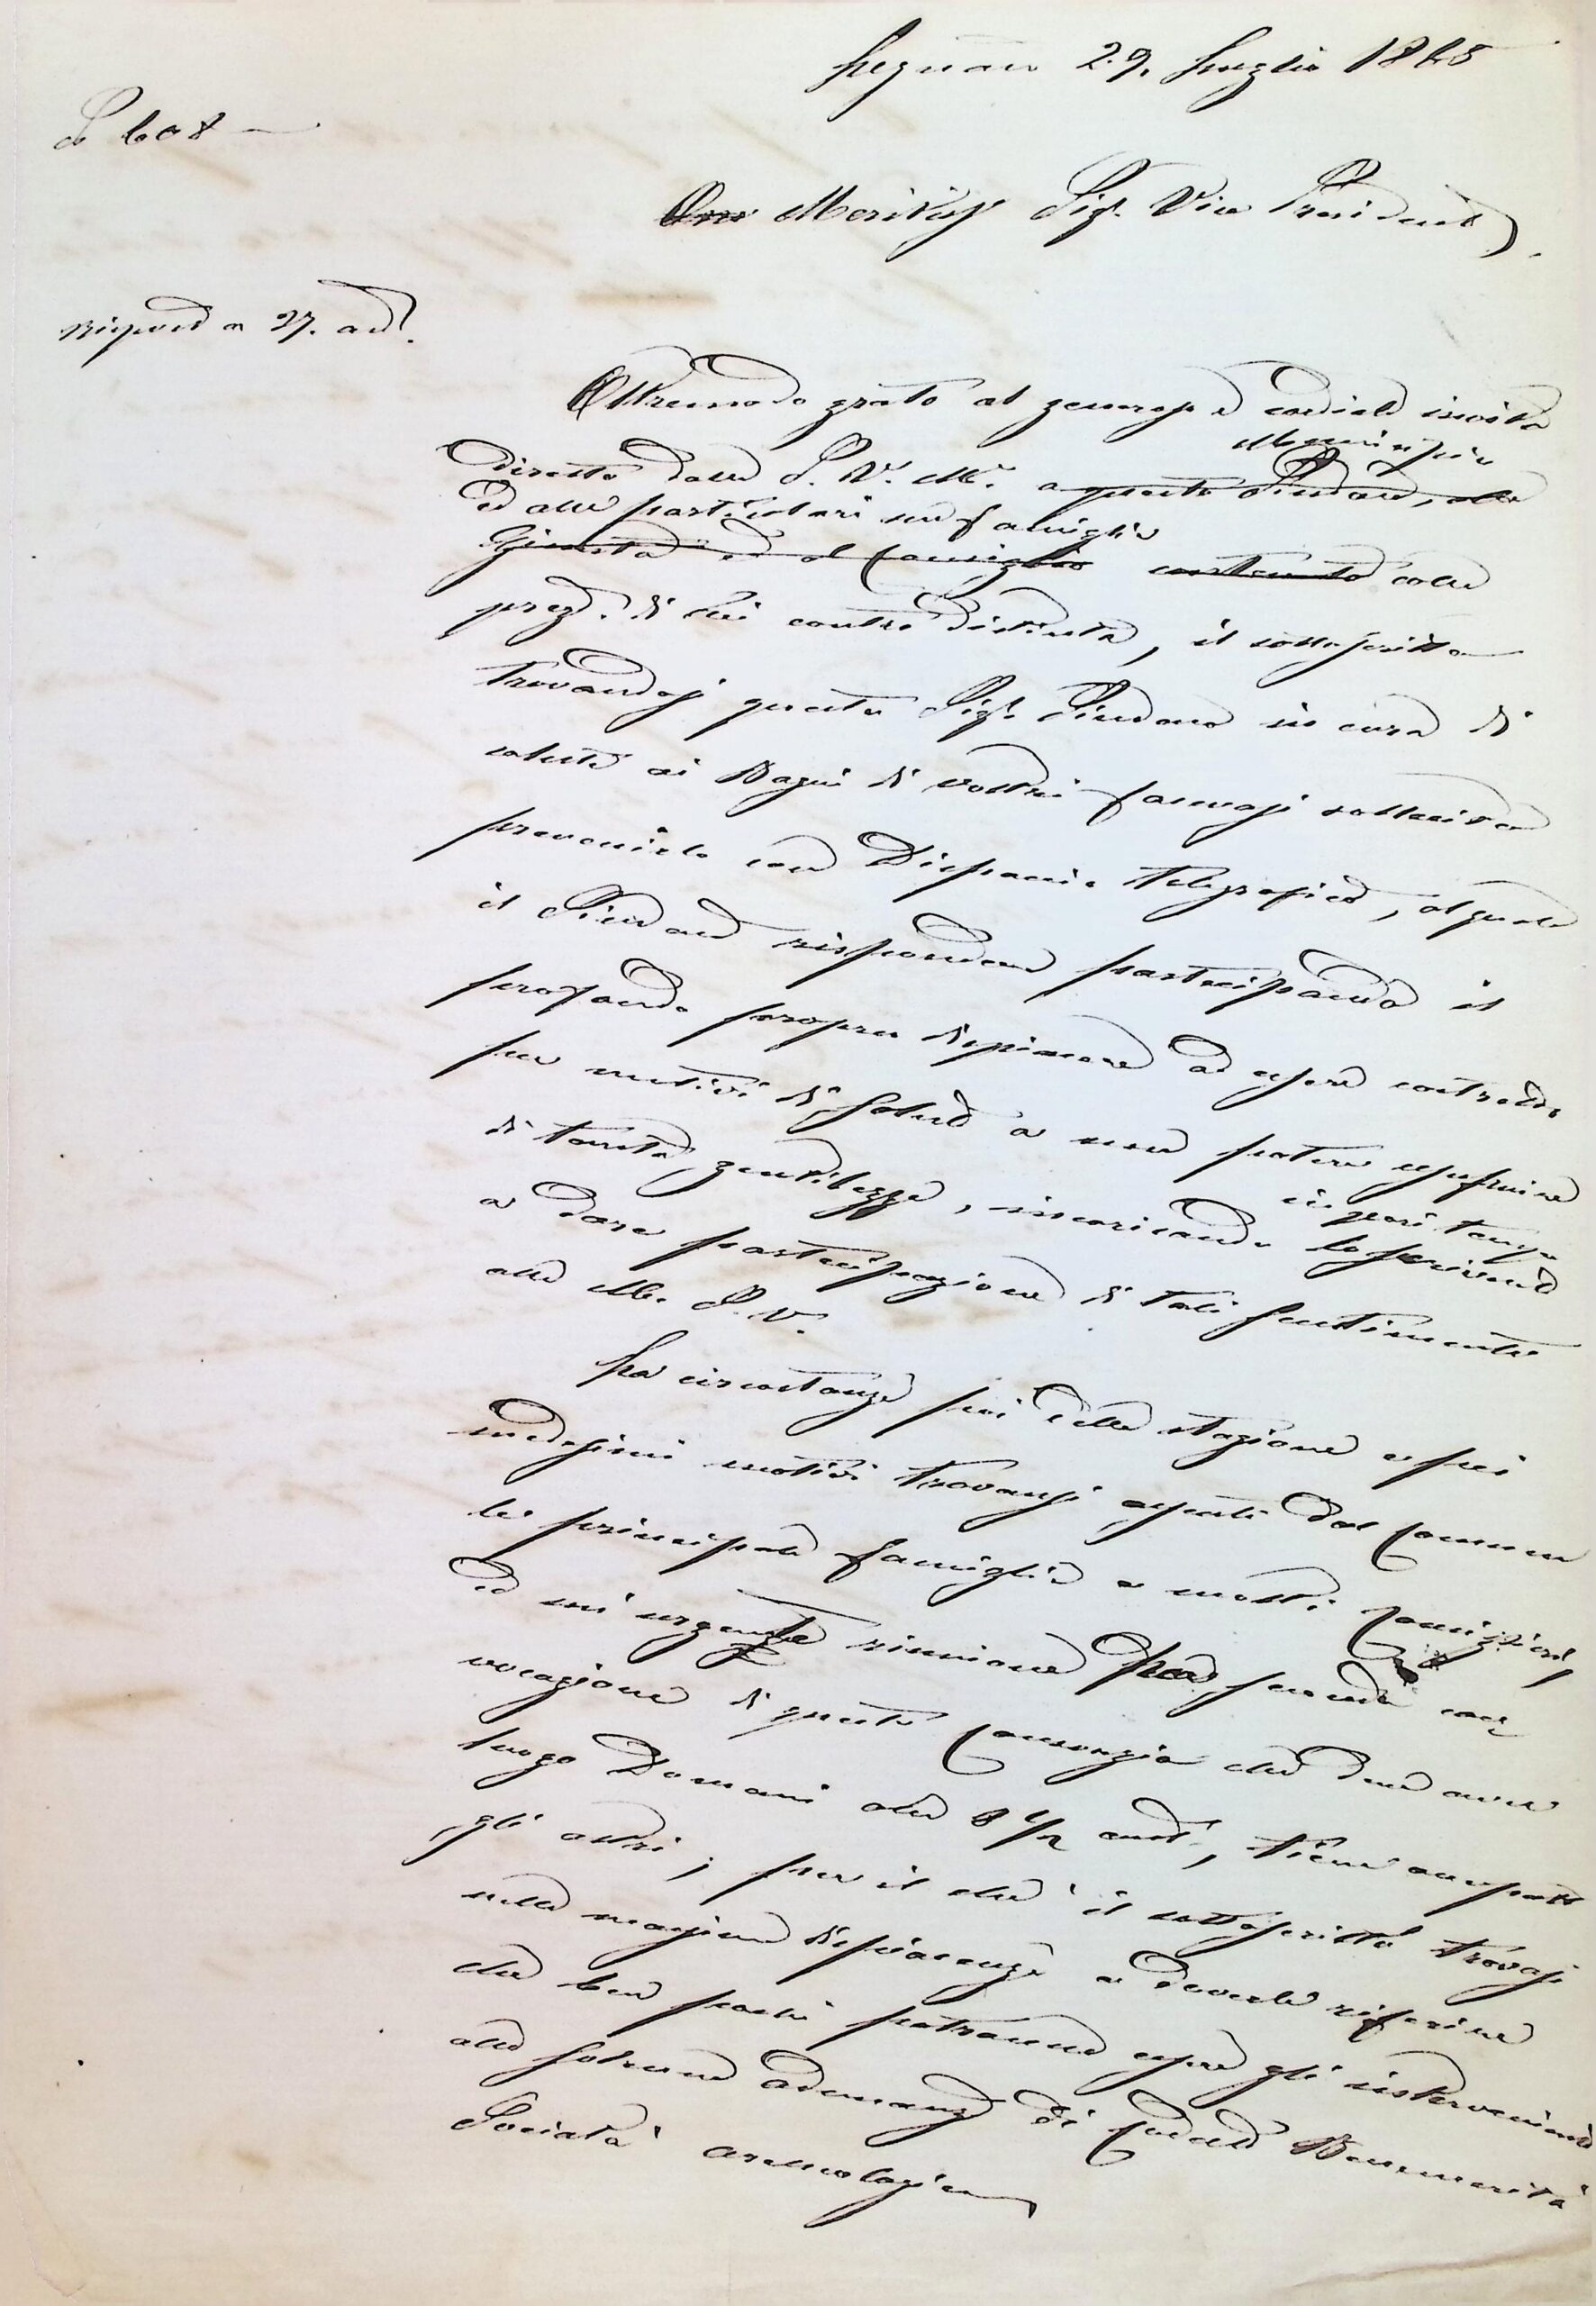 Legnano 29. Luglio 1865
N 608 —
Onor Meritiss.° Sigr. Vice Presidente.
rispond a 27. and.
Oltremodo grato al generoso e cordiale invito
diretto dalla S. V. M. a questo Sindaco, alla
Municipio
ed alle particolari sue famiglie
Giunta ed al Consiglio contenuto colla
preg. di Lei contro distinta, il sottoscritto
trovandosi questo Sigr. Sindaco in cura di
salute ai Bagni di vostri famosi sollecitò
prevenirlo con Dispaccio telegrafico, al quale
il Sindaco rispondeva partecipando il
profondo proprio dispiacere ad essere costretto
per motivi di salute a non potere usufruire
di tanta gentilezza, incaricando lo scrivente
in pari tempo
a dare partecipazione di tali sentimenti
alla M. S. V.
La circostanza poi della stagione e pei
medesimi motivi trovansi assenti dal Comune
le principali famiglie e molti Consiglieri,
ed un'urgente riunione per seconda con
vocazione di questo Consorzio che deve aver
luogo Domani alle 8 1/2 ant., tiene occupati
gli altri; per il che il sottoscritto trovasi
nella massima dispiacenza a doverle riferire
che ben pochi potranno essere gli intervenienti
alla solenne adunanza di codesta Benemerita
Società archeologica